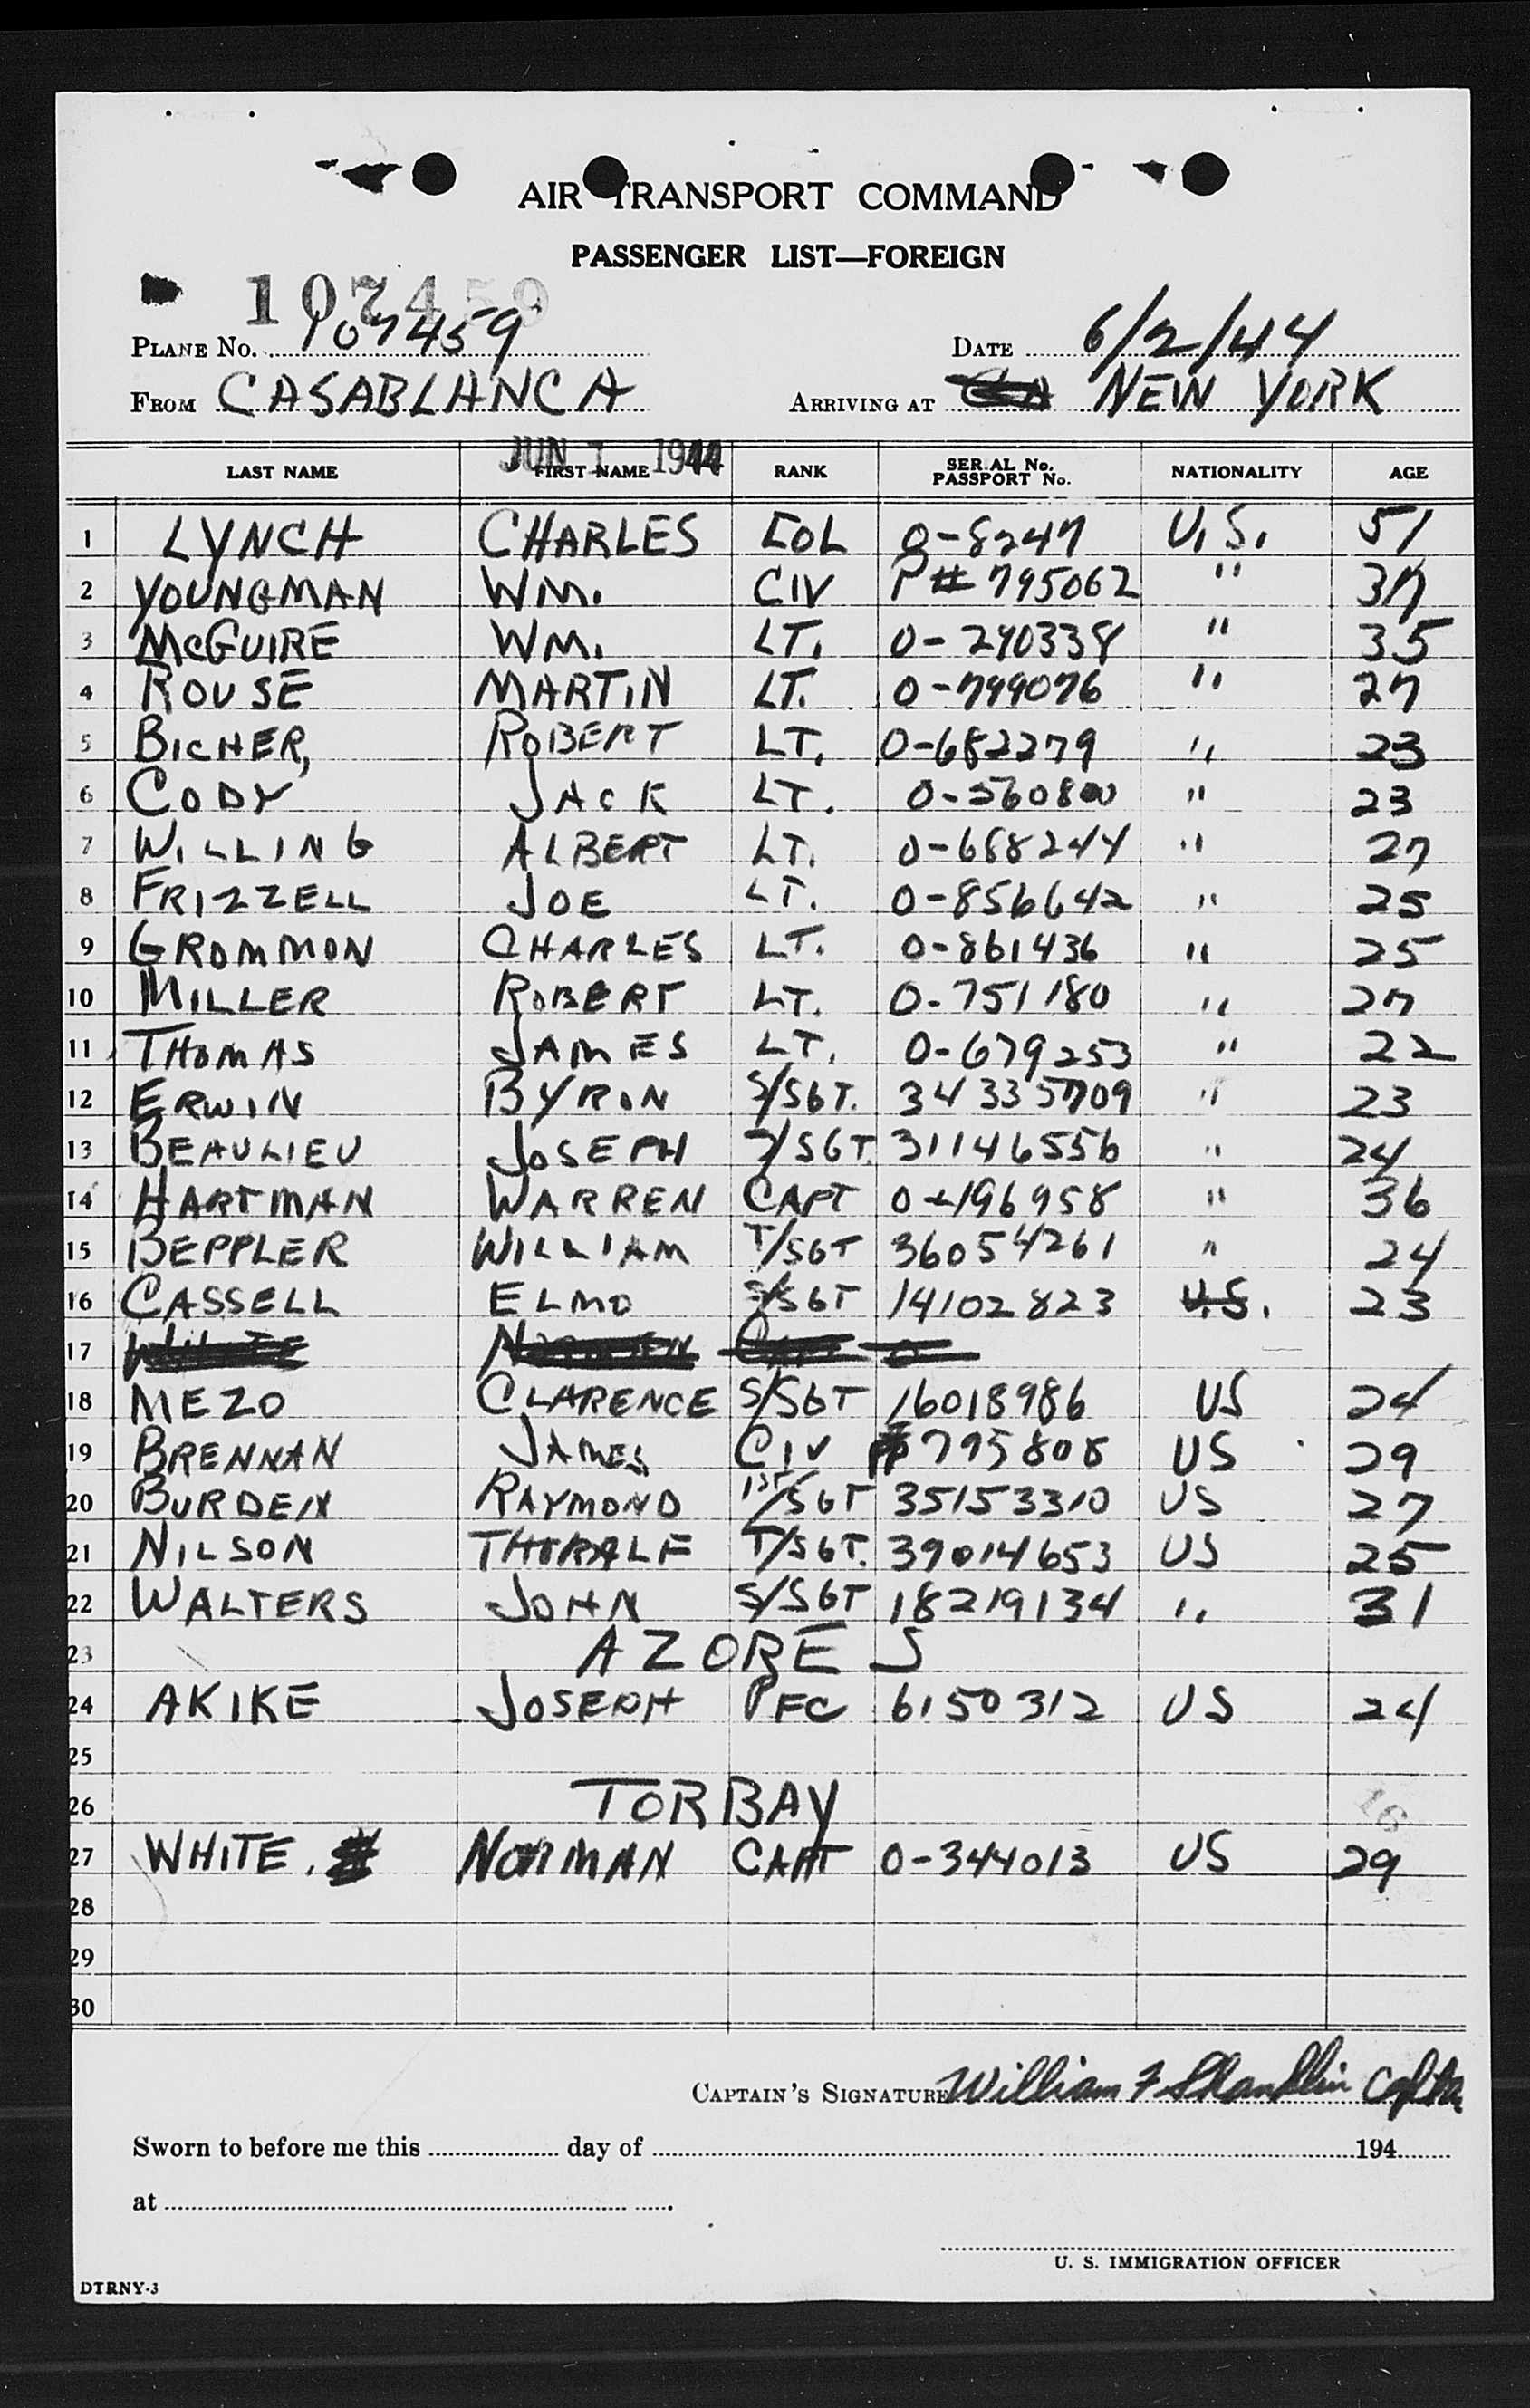 AIR TRANSPORT COMMAND
PASSENGER LIST—FOREIGN
107459
PLANE No. 107459 DATE 6/2/44
FROM CASABLANCA ARRIVING AT NEW YORK
JUN 1944
LAST NAME FIRST NAME RANK SERIAL No. PASSPORT No. NATIONALITY AGE
1 LYNCH CHARLES COL 0-8247 U.S. 51
2 YOUNGMAN WM. CIV P# 795062 " 37
3 McGUIRE WM. LT. 0-290338 " 35
4 ROUSE MARTIN LT. 0-799076 " 27
5 BICHER, ROBERT LT. 0-682279 " 23
6 CODY JACK LT. 0-560800 " 23
7 WILLING ALBERT LT. 0-688244 " 27
8 FRIZZELL JOE LT. 0-856642 " 25
9 GROMMON CHARLES LT. 0-861436 " 25
10 MILLER ROBERT LT. 0-751180 " 27
11 THOMAS JAMES LT. 0-679253 " 22
12 ERWIN BYRON S/SGT. 34335709 " 23
13 BEAULIEU JOSEPH S/SGT. 31146556 " 24
14 HARTMAN WARREN CAPT 0-1196958 " 36
15 BEPPLER WILLIAM T/SGT 36054261 " 24
16 CASSELL ELMO S/SGT 14102823 U.S. 23
17 WHITE NORMAN CAPT 0
18 MEZO CLARENCE S/SGT 16018986 US 24
19 BRENNAN JAMES CIV 795808 US 29
20 BURDEN RAYMOND 1ST/SGT 35153310 US 27
21 NILSON THORALF T/SGT. 39014653 US 25
22 WALTERS JOHN S/SGT 18219134 " 31
23 AZORES
24 AKIKE JOSEPH PFC 6150312 US 24
25
26 TORBAY 16
27 WHITE. NORMAN CAPT 0-344013 US 29
28
29
30
CAPTAIN'S SIGNATURE William F Shanklin
Sworn to before me this day of 194
at
U. S. IMMIGRATION OFFICER
DTRNY-3